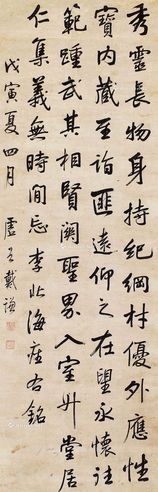 秀靈長物身持紀綱材優外應性
寶內藏至詣匪遠仰之在望永懷往
範踵武其相賢關聖域入室升堂居
仁集義無時間忘李北海座右銘
戊寅夏四月 戴謙